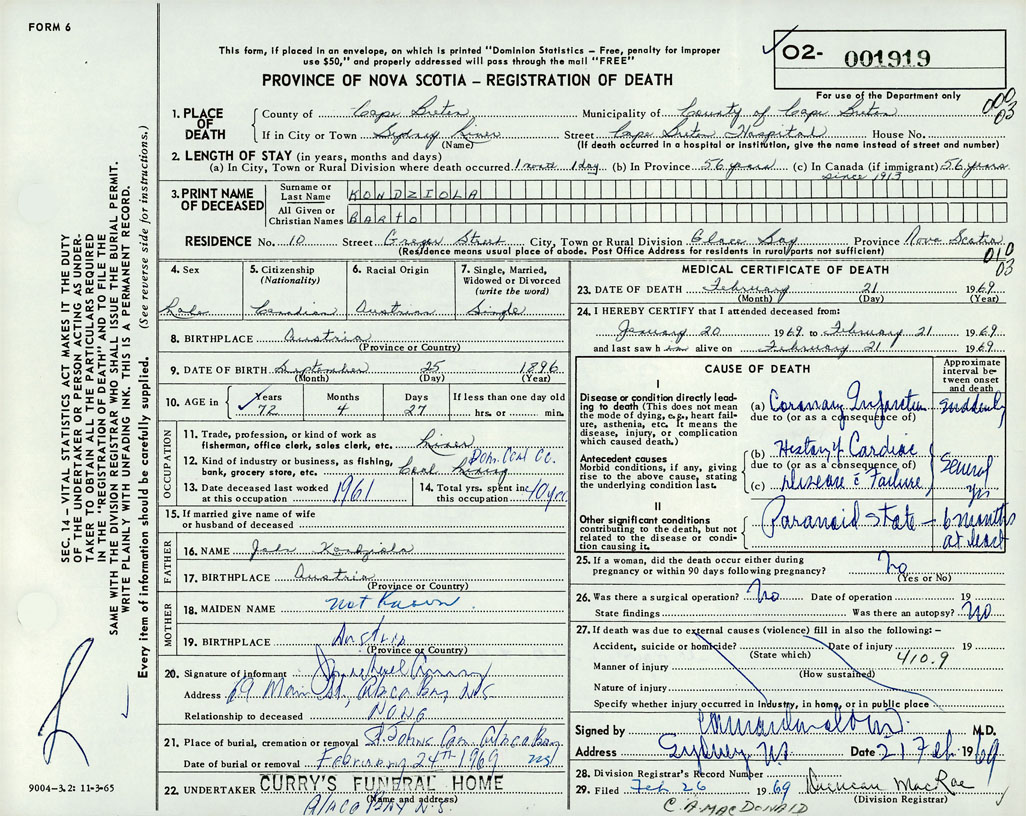 FORM 6
This form, if placed in an envelope, on which is printed "Dominion Statistics – Free, penalty for improper
use $50," and properly addressed will pass through the mail "FREE"
PROVINCE OF NOVA SCOTIA – REGISTRATION OF DEATH
O2- 001919
For use of the Department only
000
03
1. PLACE OF DEATH County of Cape Breton Municipality of County of Cape Breton
If in City or Town Sydney River Street Cape Breton Hospital House No.
(Name) (If death occurred in a hospital or institution, give the name instead of street and number)
2. LENGTH OF STAY (in years, months and days)
(a) In City, Town or Rural Division where death occurred 1 month 1 day (b) In Province 56 years (c) In Canada (if immigrant) 56 years
since 1913
3. PRINT NAME OF DECEASED
Surname or Last Name KONDZIOLA
All Given or Christian Names BARTO
RESIDENCE No. 10 Street Street City, Town or Rural Division Glace Bay Province Nova Scotia
(Residence means usual place of abode. Post Office Address for residents in rural parts not sufficient)
010
03
4. Sex
5. Citizenship (Nationality)
6. Racial Origin
7. Single, Married, Widowed or Divorced (write the word)
Male Canadian Austrian Single
8. BIRTHPLACE Austria
(Province or Country)
9. DATE OF BIRTH September 25 1896
(Month) (Day) (Year)
10. AGE in Years Months Days If less than one day old
72 4 27 hrs. or min.
OCCUPATION
11. Trade, profession, or kind of work as fisherman, office clerk, sales clerk, etc. Miner
12. Kind of industry or business, as fishing, bank, grocery store, etc. Coal Mining
Dom. Coal Co.
13. Date deceased last worked at this occupation 1961
14. Total yrs. spent in this occupation 40 yrs
15. If married give name of wife or husband of deceased
FATHER
16. NAME John Kondziola
17. BIRTHPLACE Austria
(Province or Country)
MOTHER
18. MAIDEN NAME Not Known
19. BIRTHPLACE Austria
(Province or Country)
20. Signature of informant
Address 69 Main St, Glace Bay, NS
Relationship to deceased NONE
21. Place of burial, cremation or removal St. Johns Cem. Glace Bay
Date of burial or removal February 24TH 1969 NS
22. UNDERTAKER CURRY'S FUNERAL HOME
(Name and address)
GLACE BAY N.S.
MEDICAL CERTIFICATE OF DEATH
23. DATE OF DEATH February 21 1969
(Month) (Day) (Year)
24. I HEREBY CERTIFY that I attended deceased from:
January 20 1969 to February 21 1969
and last saw him alive on February 21 1969
CAUSE OF DEATH
Approximate interval between onset and death
I
Disease or condition directly leading to death (This does not mean the mode of dying, e.g., heart failure, asthenia, etc. It means the disease, injury, or complication which caused death.)
(a) Coronary Infarction suddenly
due to (or as a consequence of)
Antecedent causes
Morbid conditions, if any, giving rise to the above cause, stating the underlying condition last.
(b) History of Cardiac
due to (or as a consequence of)
(c) Disease c Failure
several yrs
II
Other significant conditions contributing to the death, but not related to the disease or condition causing it.
Paranoid State – 6 months at least
25. If a woman, did the death occur either during pregnancy or within 90 days following pregnancy? No
(Yes or No)
26. Was there a surgical operation? No Date of operation 19
State findings Was there an autopsy? No
27. If death was due to external causes (violence) fill in also the following: –
Accident, suicide or homicide? Date of injury 19
(State which) 410.9
Manner of injury
(How sustained)
Nature of injury
Specify whether injury occurred in Industry, in home, or in public place
Signed by M.D.
Address Sydney NS Date 21 Feb 1969
28. Division Registrar's Record Number
29. Filed Feb 26 1969 Duncan MacRae
(Division Registrar)
C. A. MACDONALD
SEC. 14 – VITAL STATISTICS ACT MAKES IT THE DUTY
OF THE UNDERTAKER OR PERSON ACTING AS UNDER-
TAKER TO OBTAIN ALL THE PARTICULARS REQUIRED
IN THE "REGISTRATION OF DEATH" AND TO FILE THE
SAME WITH THE DIVISION REGISTRAR WHO SHALL ISSUE THE BURIAL PERMIT.
WRITE PLAINLY WITH UNFADING INK. THIS IS A PERMANENT RECORD.
Every item of information should be carefully supplied. (See reverse side for instructions.)
9004–3.2: 11-3-65